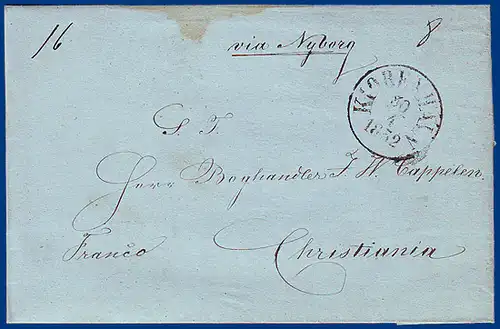 16
via Nyborg
8
KIØBENHAVN
30
4
1852
S. T.
Herr Boghandler J. W. Cappelen.
Franco
Christiania